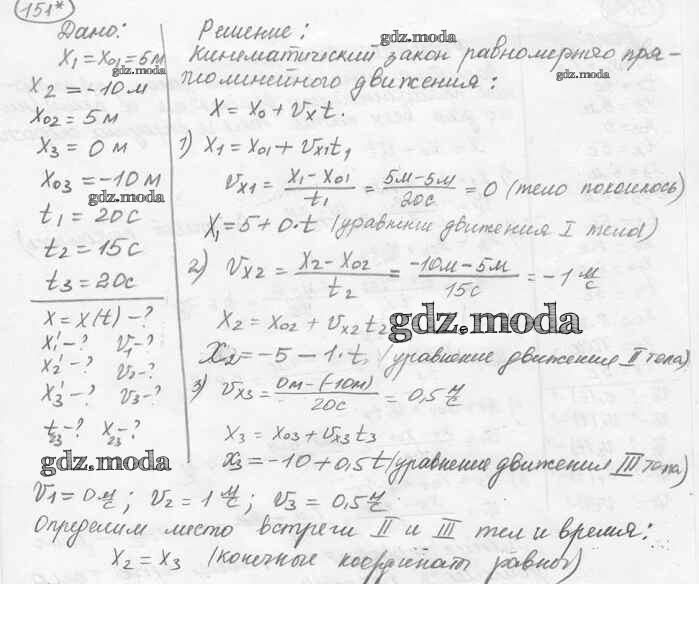 151*
Дано:
x₁ = x₀₁ = 5м
gdz.moda
x₂ = -10 м
x₀₂ = 5 м
x₃ = 0 м
x₀₃ = -10 м
gdz.moda
t₁ = 20с
t₂ = 15с
t₃ = 20с
x = x(t) - ?
x₁' - ? v₁ - ?
x₂' - ? v₂ - ?
x₃' - ? v₃ - ?
t₂₃ - ? x₂₃ - ?
gdz.moda
Решение:
gdz.moda
Кинематический закон равномерного пря-
молинейного движения:
gdz.moda
x = x₀ + vₓt.
1) x₁ = x₀₁ + vₓ₁t₁
vₓ₁ = (x₁ - x₀₁)/t₁ = (5м - 5м)/20с = 0 (тело покоилось)
x₁ = 5 + 0·t (уравнение движения I тела)
2) vₓ₂ = (x₂ - x₀₂)/t₂ = (-10м - 5м)/15с = -1 м/с
x₂ = x₀₂ + vₓ₂t₂
gdz.moda
x₂ = -5 - 1·t, (уравнение движения II тела)
3) vₓ₃ = (0м - (-10м))/20с = 0,5 м/с
x₃ = x₀₃ + vₓ₃t₃
x₃ = -10 + 0,5t (уравнение движения III тела)
v₁ = 0 м/с; v₂ = 1 м/с; v₃ = 0,5 м/с
Определим место встречи II и III тел и время:
x₂ = x₃ (конечные координаты равны)